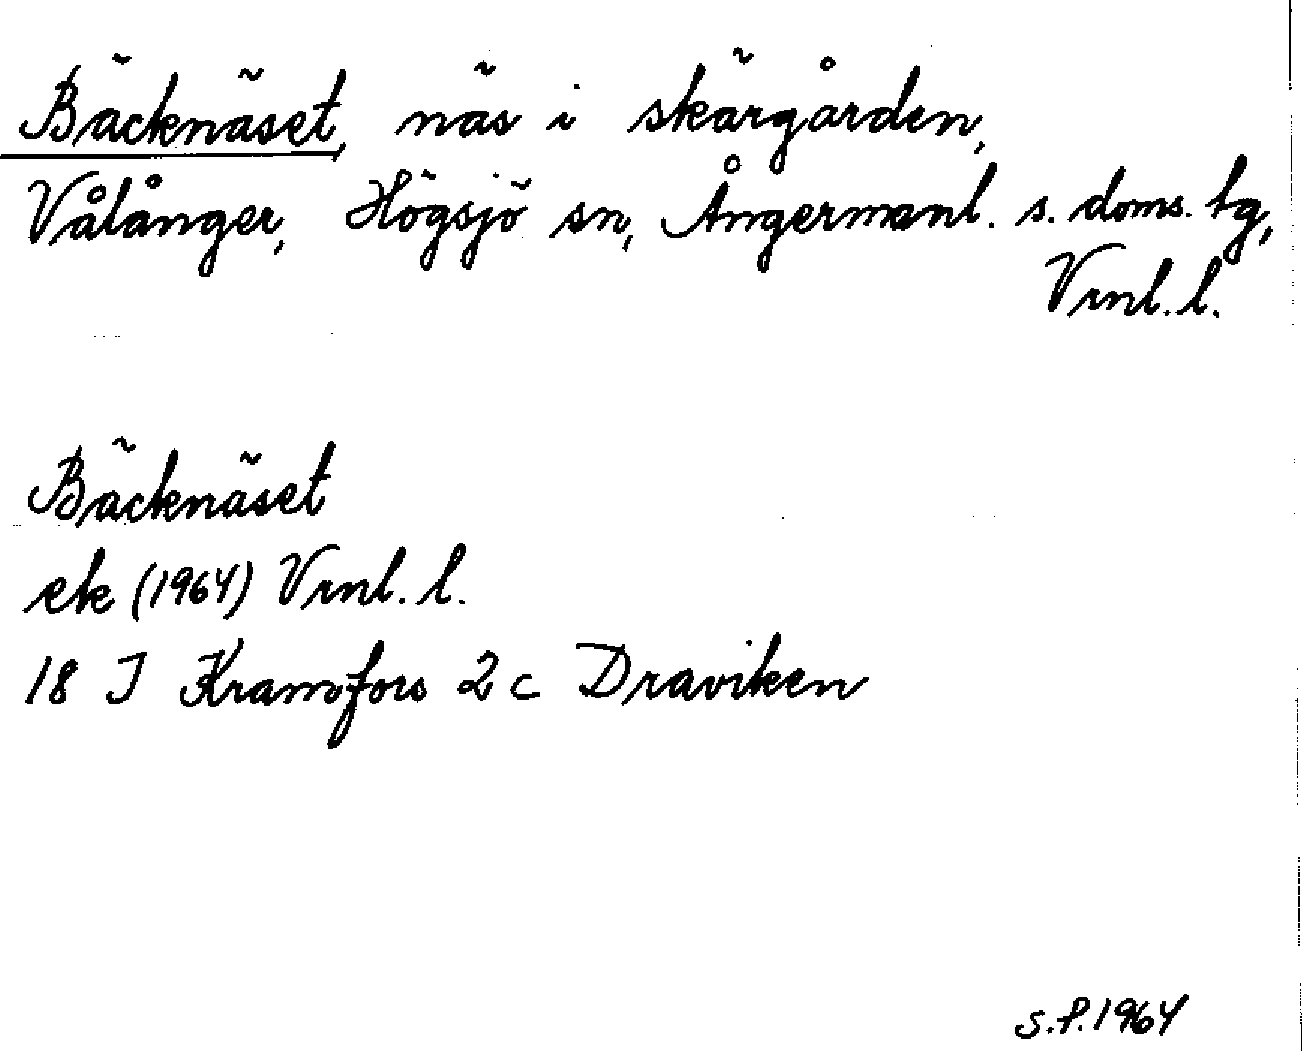 Bäcknäset, näs i skärgården,
Vålånger, Högsjö sn, Ångermanl. s. doms. tg,
Vrnl. l.
Bäcknäset
ek (1964) Vrnl. l.
18 I Kramfors 2 c Draviken
S.P. 1964